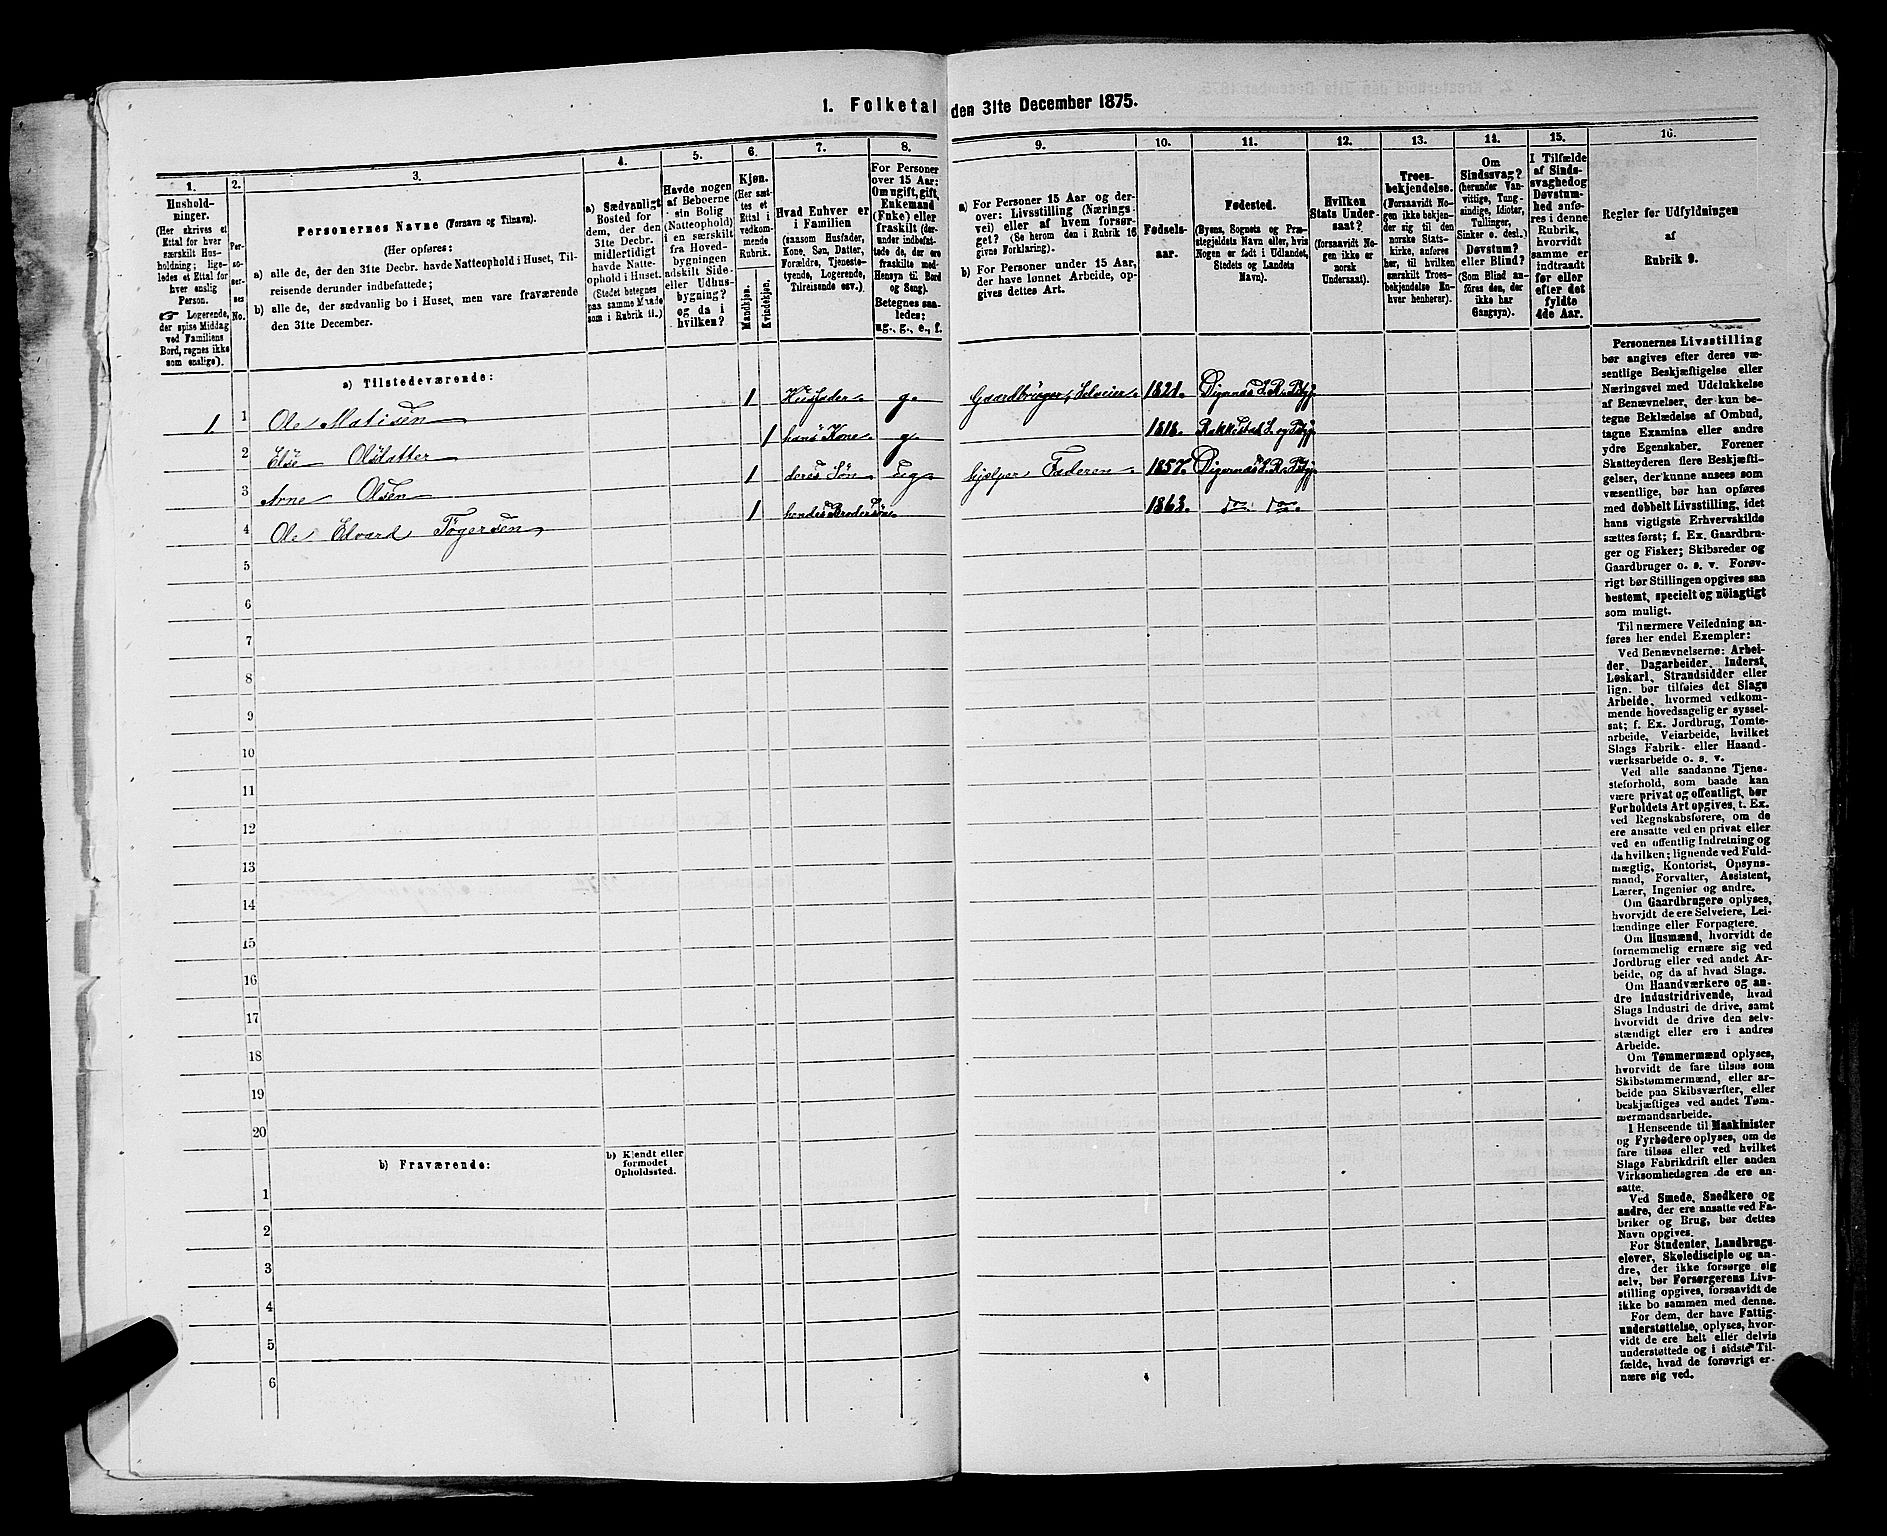 1. Folketal den 31te December 1875.
1.
2.
3.
4.
5.
6.
7.
8.
9.
10.
11.
12.
13.
14.
15.
16.
Husholdninger.
(Her skrives et
Ettal for hver
særskilt Husholdning;
ligeledes et Ettal for
hver enslig
Person.
☞ Logerende,
der spise Middag
ved Familiens
Bord, regnes ikke
som enslige).
Personernes No.
Personernes Navne (Fornavn og Tilnavn).
(Her opføres:
a) alle de, der den 31te Decbr. havde Natteophold i Huset, Tilreisende
derunder indbefattede;
b) alle de, der sædvanlig bo i Huset, men vare fraværende
den 31te December.
a) Sædvanligt
Bosted for
dem, der den
31te Decbr.
midlertidigt
havde Natteophold
i Huset.
(Stedet betegnes
paa samme Maade
som i Rubrik 11.)
Havde nogen
af Beboerne
sin Bolig
(Natteophold)
i en særskilt
fra Hovedbygningen
adskilt Side-
eller Udhusbygning?
og da i
hvilken?
Kjøn.
(Her sættes
et
Ettal i
vedkommende
Rubrik.
Mandkjøn.
Kvindekjøn.
Hvad Enhver er
i Familien
(saasom Husfader,
Kone, Søn, Datter,
Forældre, Tjenestetyende,
Logerende,
Tilreisende osv.)
For Personer
over 15 Aar:
Om ugift, gift,
Enkemand
(Enke) eller
fraskilt (derunder
indbefattede
de, der ere
fraskilte med
Hensyn til Bord
og Seng).
Betegnes saaledes:
ug., g., e., f.
a) For Personer 15 Aar og derover:
Livsstilling (Næringsvei)
eller af hvem forsørget?
(Se herom den i Rubrik 16
givne Forklaring).
b) For Personer under 15 Aar,
der have lønnet Arbeide, opgives
dettes Art.
Fødselsaar.
Fødested.
(Byens, Sognets og Præstegjeldets
Navn eller, hvis
Nogen er født i Udlandet,
Stedets og Landets
Navn).
Hvilken
Stats Undersaat?
(forsaavidt Nogen
ikke er
norsk
Undersaat).
Troesbekjendelse.
(Forsaavidt Nogen
ikke bekjender
sig til den
norske Statskirke,
anføres
her, til hvilken
særskilt Troesbekjendelse
Enhver
henhører).
Om
Sindssvag?
(herunder Vanvittige,
Tungsindige,
Idioter,
Tullinger,
Sinker o. desl.)
Døvstum?
eller Blind?
(Som Blind anføres
den, der
ikke har
Gangsyn).
I Tilfælde
af Sindssvaghed
og
Døvstumhed
anføres
i denne
Rubrik,
hvorvidt
samme er
indtraadt
før eller
efter det
fyldte
4de Aar.
Regler for Udfyldningen
af
Rubrik 9.
a) Tilstedeværende:
1. 1 Ole Matisen 1 Husfader g. Gaardbruger, Selveier 1821.
2 Else Olsdatter 1 hans Kone g. 1818.
3 Arne Olsen 1 deres Søn ug hjelper Faderen 1857.
4 Ole Edvard Tøgersen 1 hendes Brodersøn 1863. do do
5
6
7
8
9
10
11
12
13
14
15
16
17
18
19
20
b) Fraværende:
b) Kjendt eller
formodet
Opholdssted.
1
2
3
4
5
6
Personernes Livsstilling
bør angives efter deres væsentlige
Beskjæftigelse eller
Næringsvei med Udelukkelse
af Benævnelser, der kun betegne
Beklædelse af Ombud,
tagne Examina eller andre
ydre Egenskaber. Forener
Skatteyderen flere Beskjæftigelser,
der kunne ansees som
væsentlige, bør han opføres
med dobbelt Livsstilling, idet
hans vigtigste Erhvervskilde
sættes først; f. Ex. Gaardbruger
og Fisker; Skibsreder og
Gaardbruger o. s. v. Forøvrigt
bør Stillingen opgives saa
bestemt, specielt og nöiagtigt
som muligt.
Til nærmere Veiledning anføres
her endel Exempler:
Ved Benævnelserne: Arbeider,
Dagarbeider, Inderst,
Løskarl, Strandsidder eller
lign. bør tilføies det Slags
Arbeide, hvormed vedkommende
hovedsagelig er sysselsat;
f. Ex. Jordbrug, Tomtearbeide,
Veiarbeide, hvilket
Slags Fabrik- eller Haandværksarbeide
o. s. v.
Ved alle saadanne Tjenesteforhold,
som baade kan
være privat og offentligt, bør
Forholdets Art opgives, t. Ex.
ved Regnskabsførere, om de
ere ansatte ved en privat eller
ved en offentlig Indretning og
da hvilken; lignende ved Fuldmægtig,
Kontorist, Opsynsmand,
Forvalter, Assistent,
Lærer, Ingeniør og andre.
Om Gaardbrugere oplyses,
hvorvidt de ere Selveiere, Leilændinge
eller Forpagtere.
Om Husmænd, hvorvidt de
fornemmelig ernære sig ved
Jordbrug eller ved andet Arbeide,
og da af hvad Slags.
Om Haandværkere og andre
Industridrivende, hvad
Slags Industri de drive, samt
hvorvidt de drive den selvstændigt
eller ere i andres
Arbeide.
Om Tømmermænd oplyses,
hvorvidt de fare tilsøs som
Skibstømmermænd, eller arbeide
paa Skibsværfter, eller
beskjæftiges ved andet Tømmermandsarbeide.
I Henseende til Maskinister
og Fyrbødere oplyses, om de
fare tilsøs eller ved hvilket
Slags Fabrikdrift eller anden
Virksomhedsgren de ere ansatte.
Ved Smede, Snedkere og
andre, der ere ansatte ved Fabriker
og Brug, bør dettes
Navn opgives.
For Studenter, Landbrugselever,
Skoledisciple og andre,
der ikke forsørge sig
selv, bør Forsørgerens Livsstilling
opgives, forsaavidt de
ikke bo sammen med denne.
For dem, der have Fattigunderstøttelse,
oplyses, hvorvidt
de ere helt eller delvis
understøttede og i sidste Tilfælde,
hvad de forøvrigt ernære
sig ved.